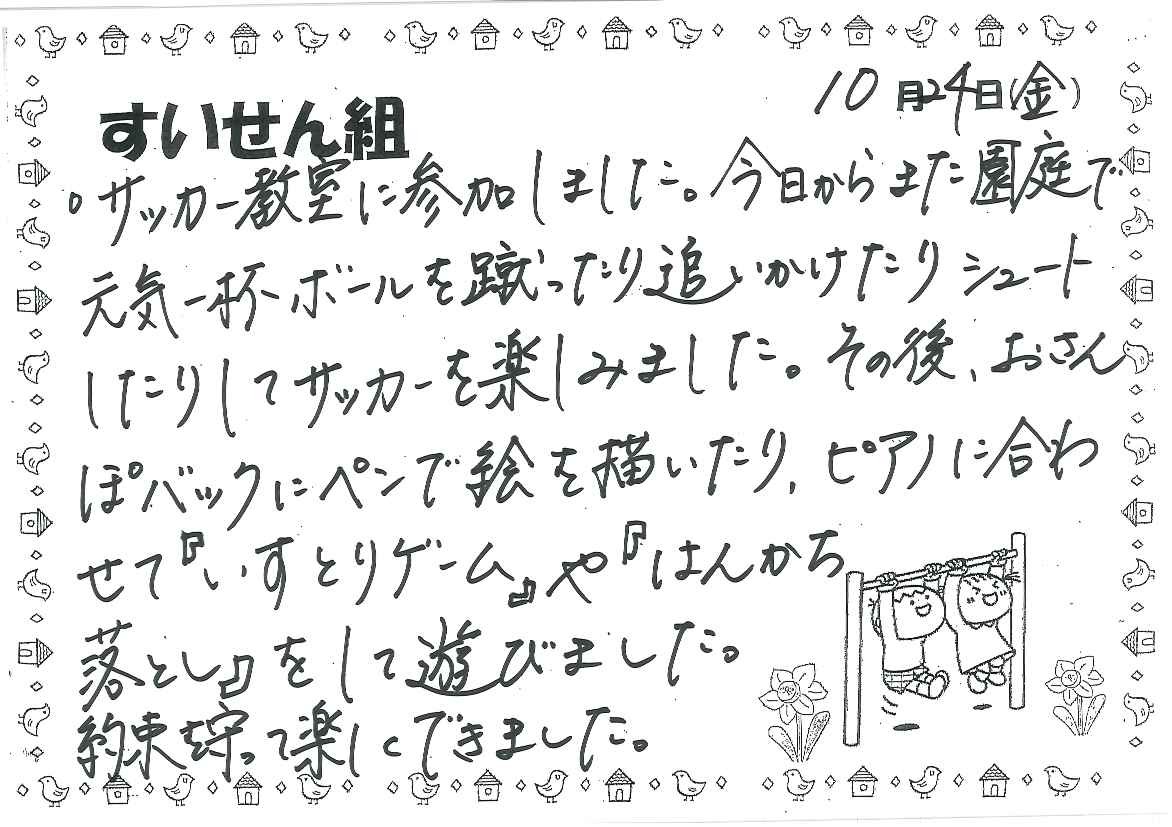 10月24日(金)
すいせん組
○サッカー教室に参加しました。今日からまた園庭で
元気一杯ボールを蹴ったり追いかけたりシュート
したりしてサッカーを楽しみました。その後、おさん
ぽバックにペンで絵を描いたり、ピアノに合わ
せて『いすとりゲーム』や『はんかち
落とし』をして遊びました。
約束を守って楽しくできました。